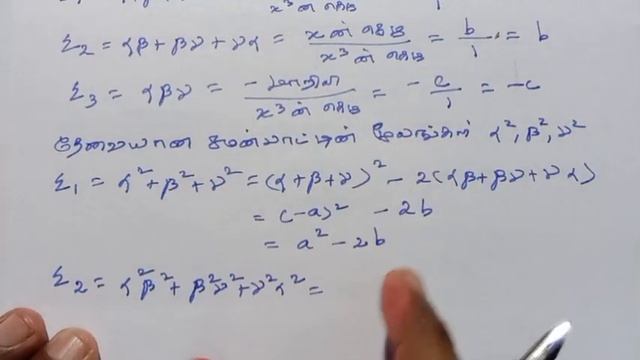 x³ன் கெழு 1
Σ₂ = αβ + βγ + γα = xன் கெழு / x³ன் கெழு = b/1 = b
Σ₃ = αβγ = -மாறிலி / x³ன் கெழு = -c/1 = -c
தேவையான சமன்பாட்டின் மூலங்கள் α², β², γ²
Σ₁ = α² + β² + γ² = (α+β+γ)² - 2(αβ+βγ+γα)
= (-a)² - 2b
= a² - 2b
Σ₂ = α²β² + β²γ² + γ²α² =